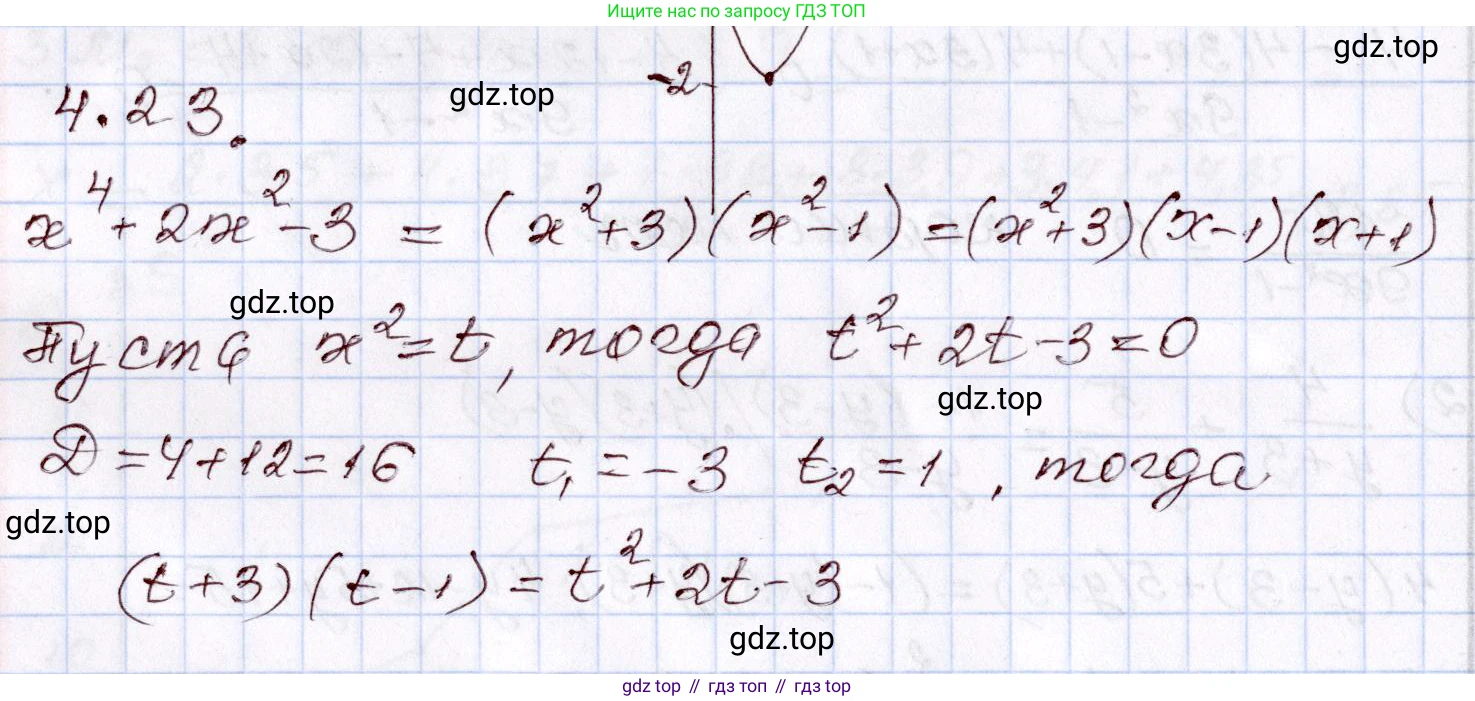 Ищите нас по запросу ГДЗ ТОП
gdz.top
-2
gdz.top
4.23.
x⁴+2x²-3 = (x²+3)(x²-1)=(x²+3)(x-1)(x+1)
gdz.top
Пусть x²=t, тогда t²+2t-3=0
gdz.top
D=4+12=16 t₁=-3 t₂=1, тогда
gdz.top
(t+3)(t-1)=t²+2t-3
gdz.top
gdz top // гдз топ // gdz top